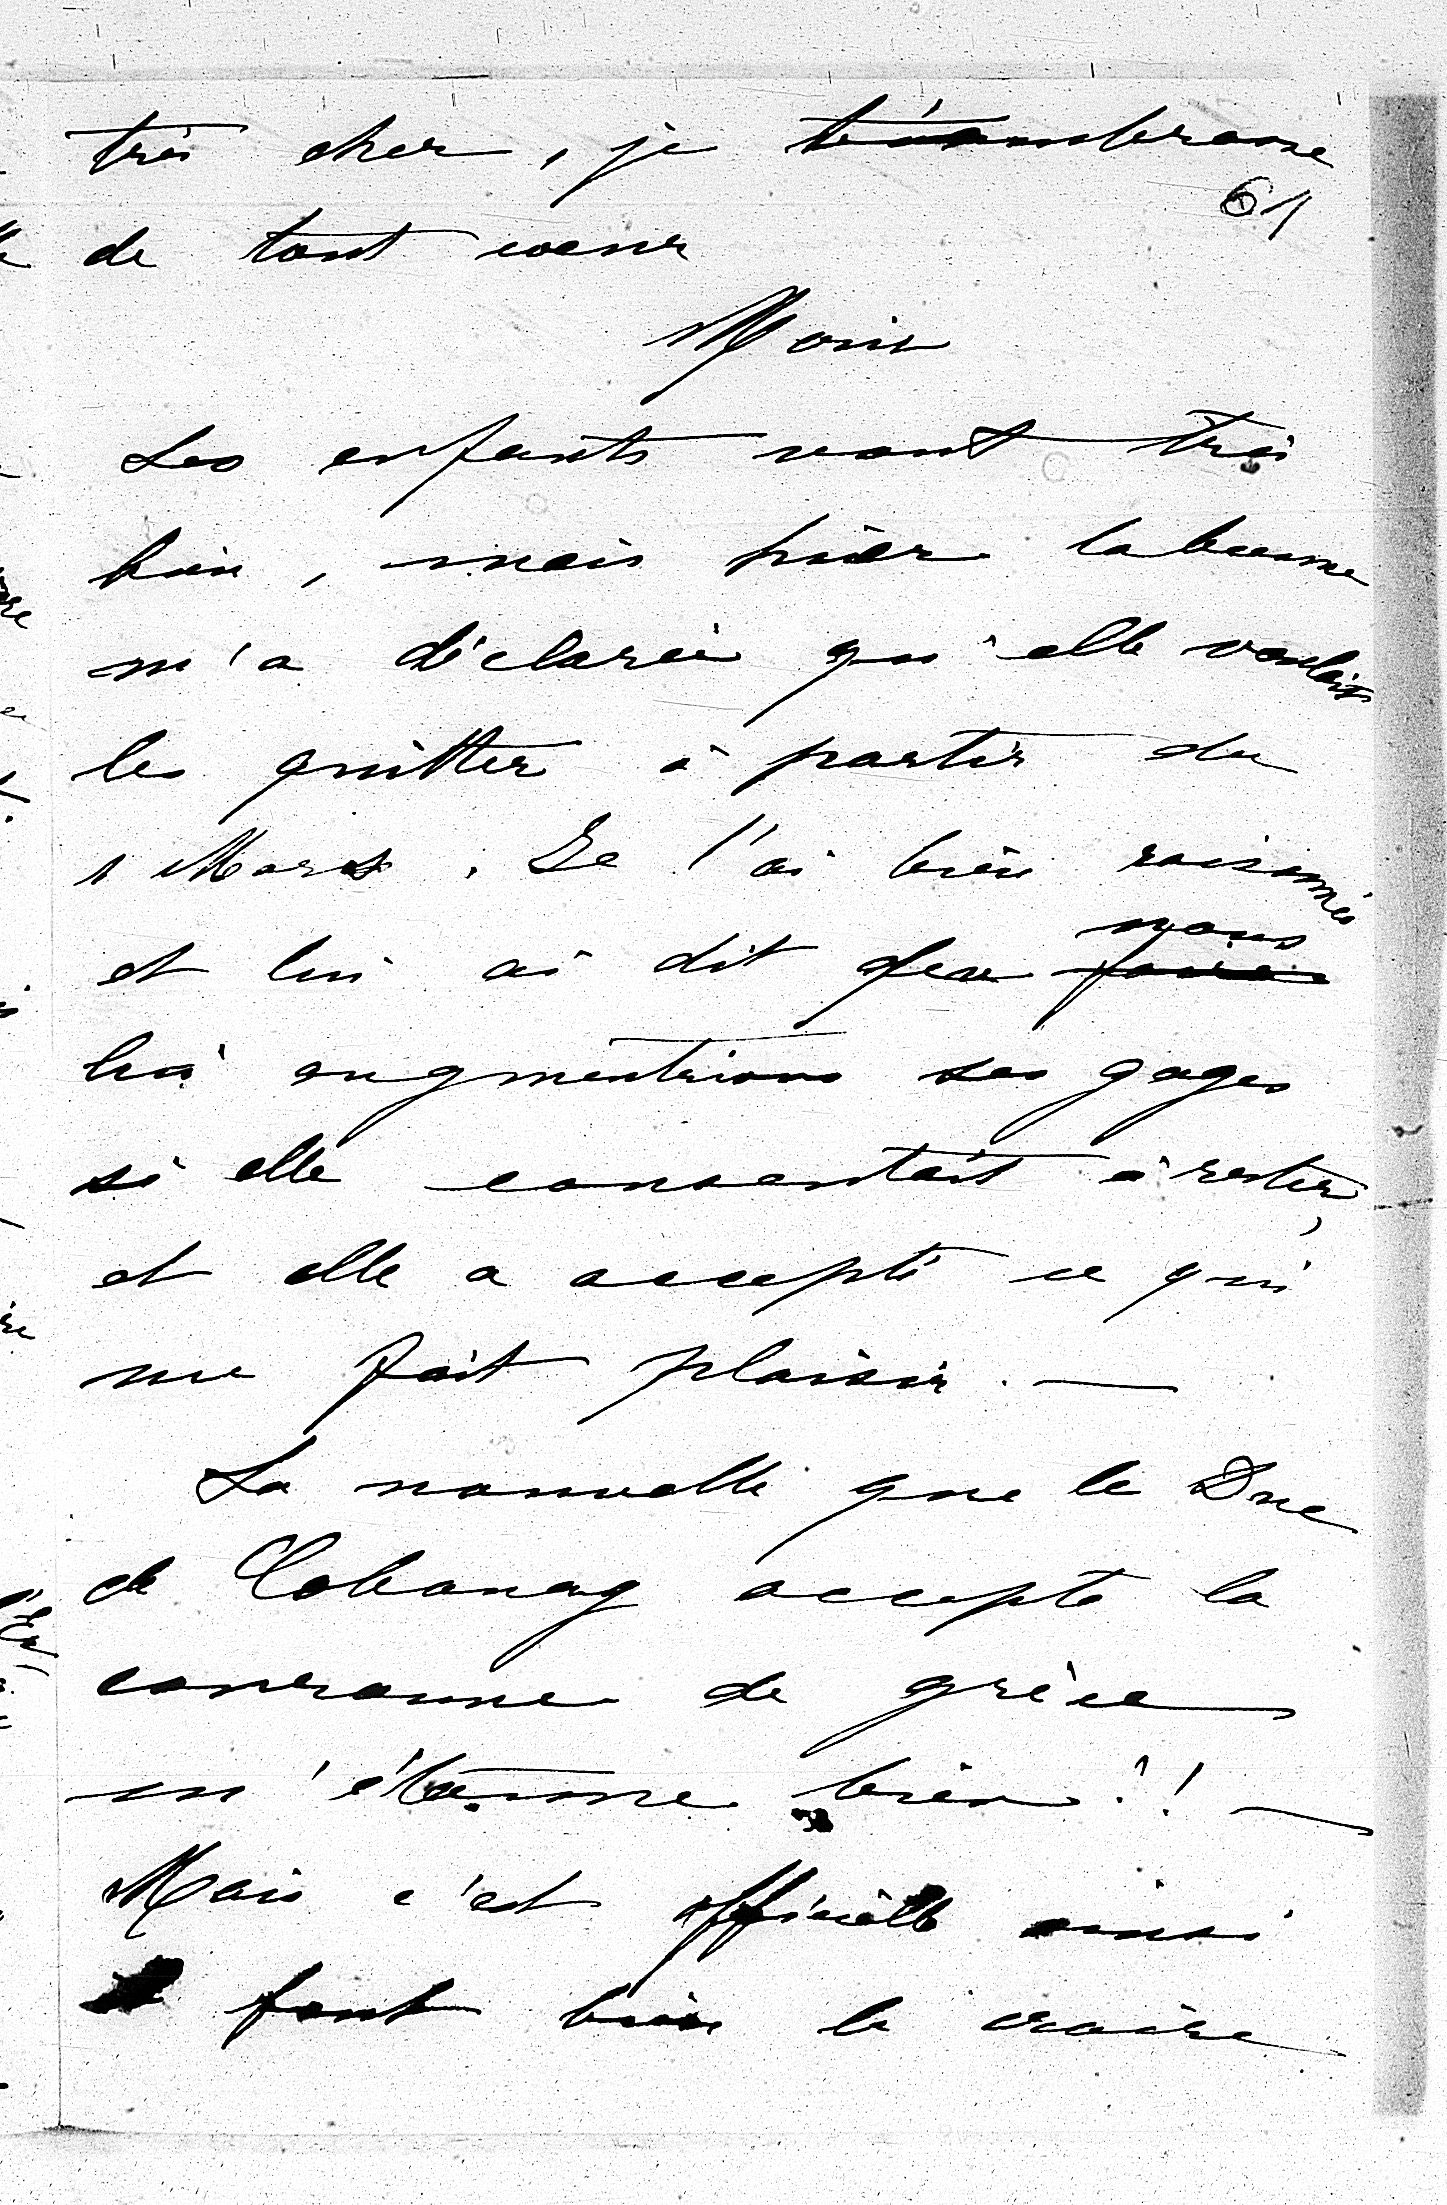 très cher, je t'embrasse
61
de tout coeur
Marie
Les enfants vont très
bien, mais hier la bonne
m'a déclaré qu'elle voulait
les quitter à partir du
1 Mars. Je l'ai bien raisonnée
et lui ai dit que nous
lui augmentrions ses gages
si elle consentait à rester,
et elle a accepté ce qui
me fait plaisir. —
La nouvelle que le Duc
de Cobourg accepte la
couronne de grèce
m'étonne bien!! —
Mais c'est officielle ainsi
faut bien le croire